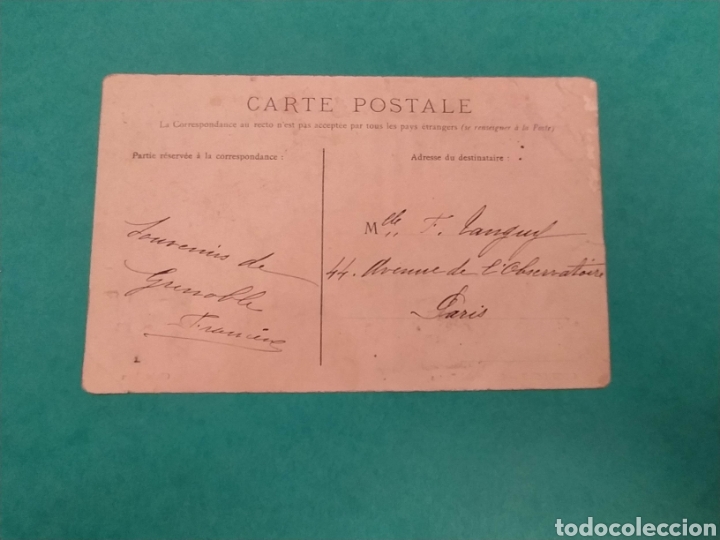 CARTE POSTALE
La Correspondance au recto n'est pas acceptée par tous les pays étrangers (se renseigner à la Poste)
Partie réservée à la correspondance :
Souvenirs de
Grenoble
Francine
Adresse du destinataire :
Mlle F. Tanguy
44. Avenue de l'Observatoire
Paris
todocoleccion